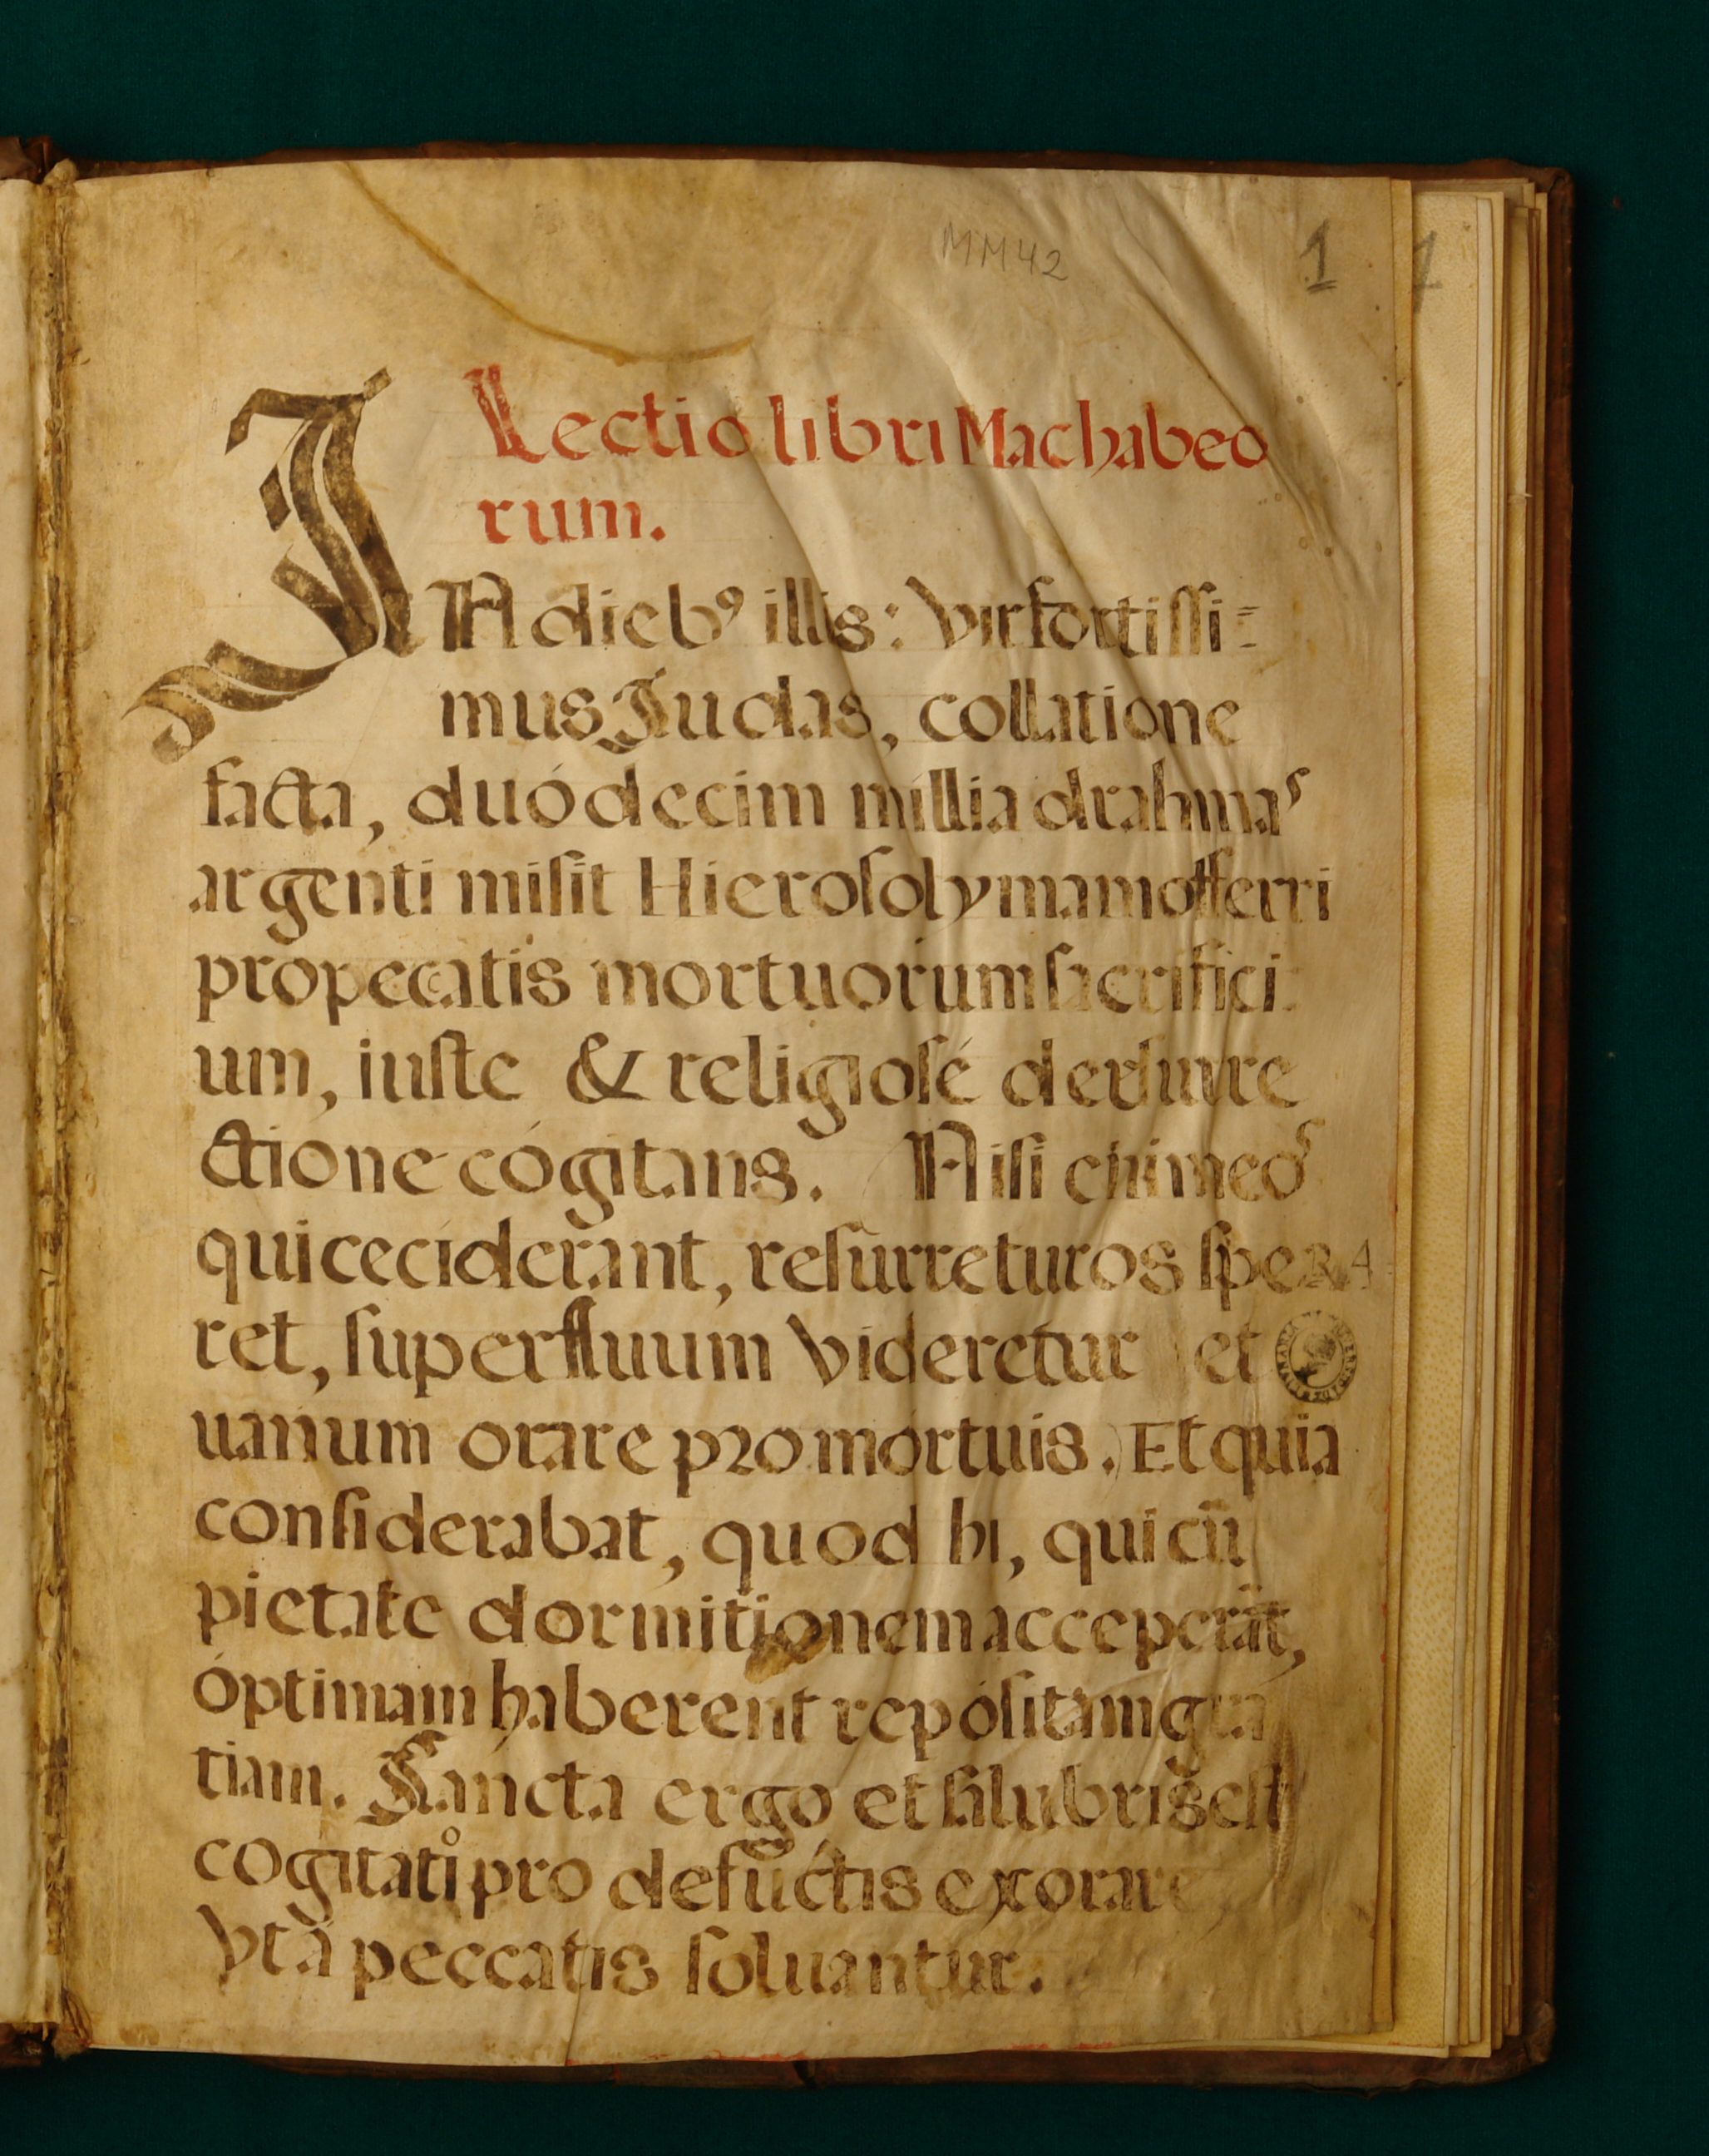 MM42 1
Lectio libri Machabeo
rum.
IN dieb⁹ illis: Vir fortissi=
mus Iudas, collatione
facta, duódecim míllia drahmas
argenti misit Hierosolymam offerri
pro peccatis mortuorum sacrifici
um, iuste & religiosé de resurre
ctione cógitans. Nisi enim eos
qui cecíderant, resurreturos spera
ret, superfluum videretur et
uanum orare pro mórtuis. Et quia
considerabat, quod hi, qui cū
pietate dormitiónem acceperāt,
óptimam haberent repósitam gra
tiam. Sancta ergo et salubris est
cogitatı̊ pro defūctis exorare
Vt à peccatis soluantur.